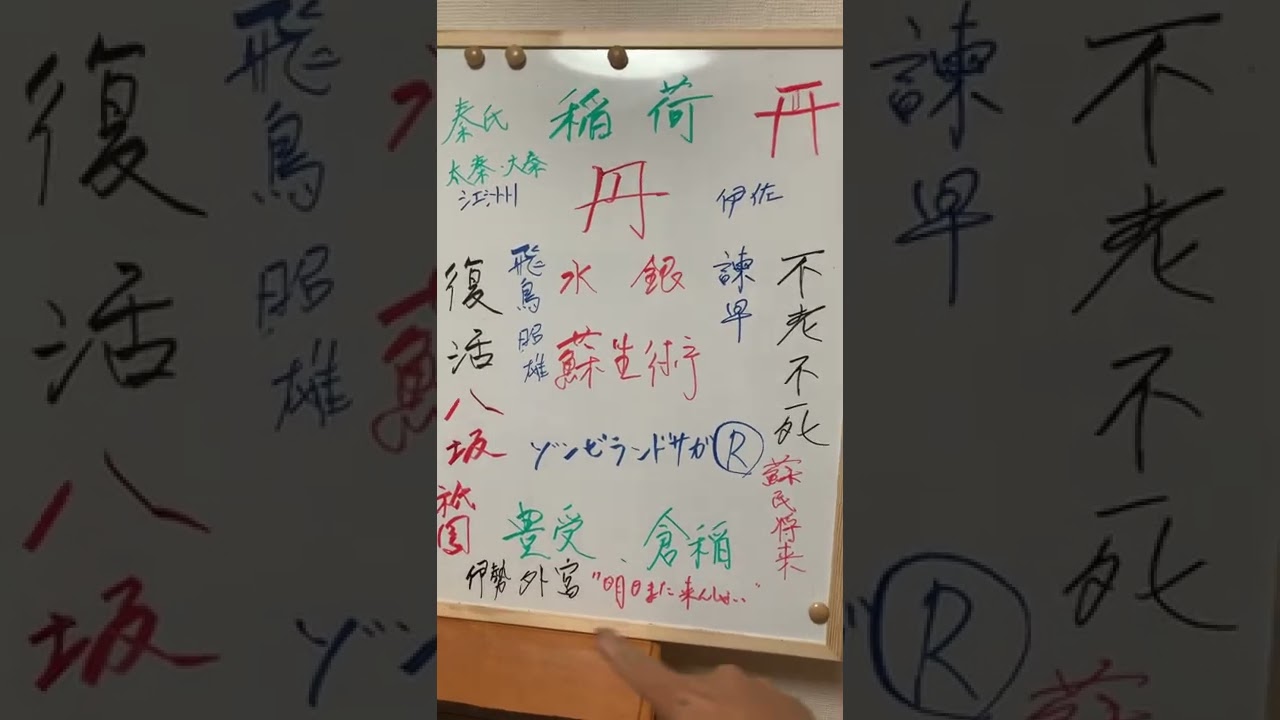 秦氏 稲荷 丹
太秦・大秦
江州 丹 伊佐
復活 飛鳥昭雄 水銀 諫早 不老不死
蘇生術
八坂 ゾンビランドサガⓇ
祇園 豊受 倉稲 蘇民将来
伊勢外宮 "明日また来んしゃ‥"